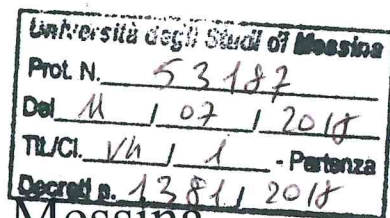 Università degli Studi di Messina
Prot. N. 53187
Del 11 / 07 / 2018
Tit./Cl. VII / 1 - Partenza
Decreti n. 1381 / 2018
Messina